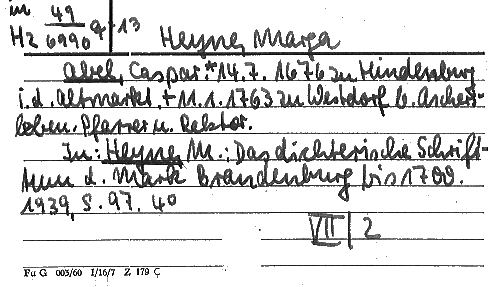 in 49
Hz 6990 q-13 Heyne, Marga
Abel, Caspar. *14.7.1676 zu Hindenburg
i.d. Altmarkt, +11.1.1763 zu Westdorf b. Aschers-
leben. Pfarrer u. Rektor.
In: Heyne, M.: Das dichterische Schrift-
tum d. Mark Brandenburg bis 1700.
1939, S. 97. 40
VII | 2
Fu G 003/60 I/16/7 Z 179 C